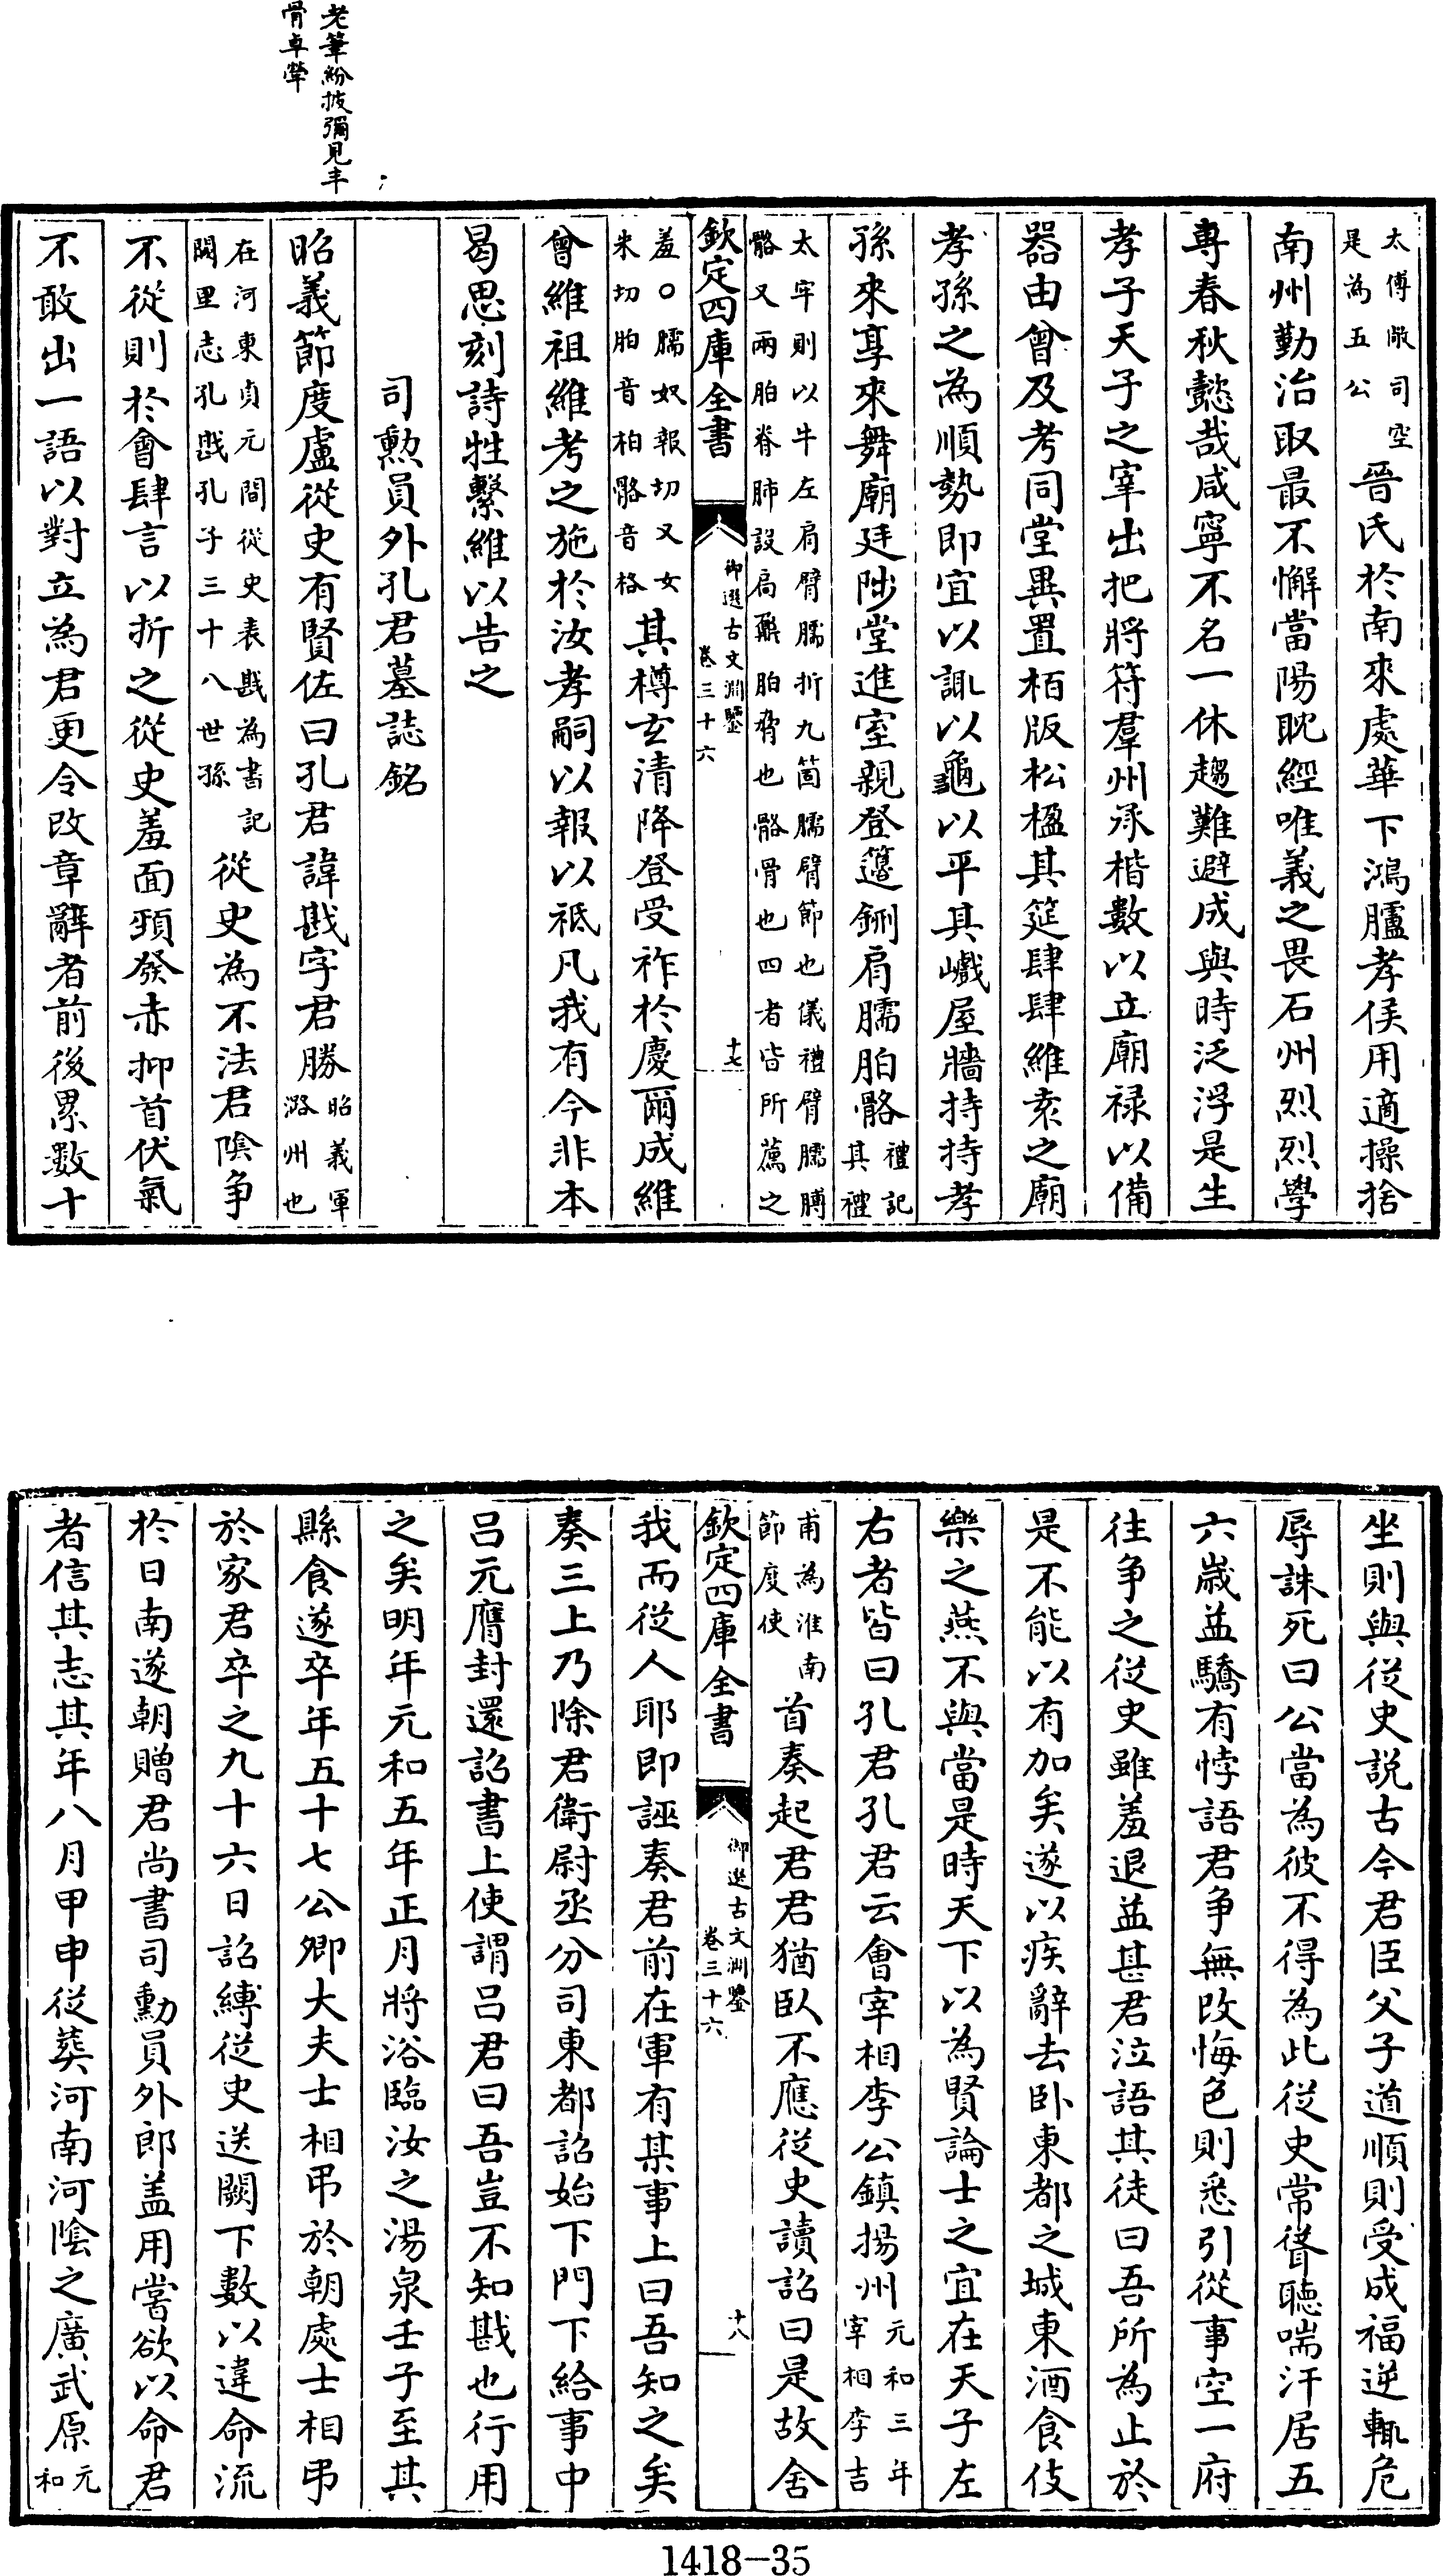 老筆紛披彌見丰
骨卓犖
太傅敞司空
是為五公
晉氏於南來處華下鴻臚孝侯用適操捨
南州勤治取最不懈當陽耽經唯義之畏石州烈烈學
專春秋懿哉咸寧不名一休趨難避成與時泛浮是生
孝子天子之宰出把將符羣州承楷數以立廟祿以備
器由曾及考同堂異置栢版松楹其筵肆肆維袁之廟
孝孫之為順勢即宜以諏以龜以平其巇屋牆持持孝
孫來享來舞廟廷陟堂進室親登籩鉶肩臑胉骼
禮記
其禮
太牢則以牛左肩臂臑折九箇臑臂節也儀禮臂臑膊
骼又兩胉脊肺設扃鼏胉脅也骼骨也四者皆所薦之
欽定四庫全書
御選古文淵鑒
卷三十六
十七
羞○臑奴報切又女
朱切胉音柏骼音格
其樽玄清降登受祚於慶爾成維
曾維祖維考之施於汝孝嗣以報以祗凡我有今非本
曷思刻詩牲繫維以告之
司勲員外孔君墓誌銘
昭義節度盧從史有賢佐曰孔君諱戡字君勝
昭義軍
潞州也
在河東貞元間從史表戡為書記
闕里志孔戡孔子三十八世孫
從史為不法君陰争
不從則於會肆言以折之從史羞面頸發赤抑首伏氣
不敢出一語以對立為君更令改章辭者前後累數十
坐則與從史説古今君臣父子道順則受成福逆輒危
辱誅死曰公當為彼不得為此從史常聳聽喘汗居五
六嵗益驕有悖語君争無改悔色則悉引從事空一府
往争之從史雖羞退益甚君泣語其徒曰吾所為止於
是不能以有加矣遂以疾辭去卧東都之城東酒食伎
樂之燕不與當是時天下以為賢論士之宜在天子左
右者皆曰孔君孔君云會宰相李公鎮揚州
元和三年
宰相李吉
甫為淮南
節度使
首奏起君君猶卧不應從史讀詔曰是故舍
欽定四庫全書
御選古文淵鑒
卷三十六
十八
我而從人耶即誣奏君前在軍有某事上曰吾知之矣
奏三上乃除君衛尉丞分司東都詔始下門下給事中
吕元膺封還詔書上使謂吕君曰吾豈不知戡也行用
之矣明年元和五年正月將浴臨汝之湯泉壬子至其
縣食遂卒年五十七公卿大夫士相弔於朝處士相弔
於家君卒之九十六日詔縛從史送闕下數以違命流
於日南遂朝贈君尚書司勳員外郎盖用嘗欲以命君
者信其志其年八月甲申從葬河南河陰之廣武原
元
和
1418-35